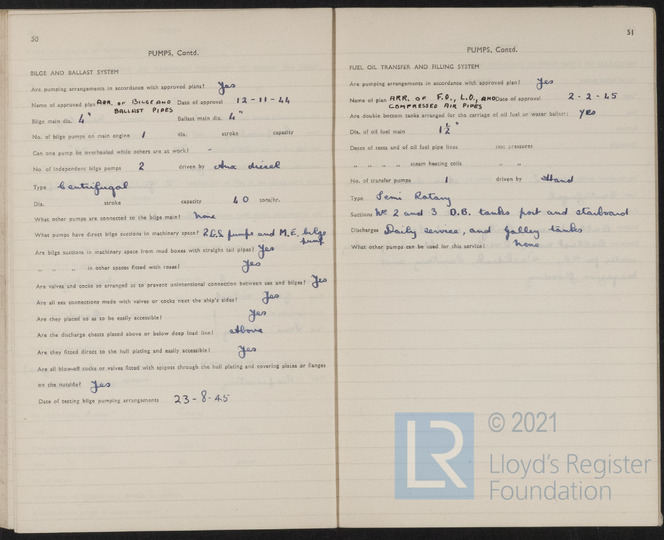 50
PUMPS, Contd.
BILGE AND BALLAST SYSTEM
Are pumping arrangements in accordance with approved plans? Yes
Name of approved plan ARR. OF BILGE AND BALLAST PIPES Date of approval 12-11-44
Bilge main dia. 4" Ballast main dia. 4"
No. of bilge pumps on main engine 1 dia. stroke capacity
Can one pump be overhauled while others are at work? -
No. of independent bilge pumps 2 driven by Aux diesel
Type Centrifugal
Dia. stroke capacity 40 tons/hr.
What other pumps are connected to the bilge main? None
What pumps have direct bilge suctions in machinery space? 2 G.S. pumps and M.E. bilge pump
Are bilge suctions in machinery space from mud boxes with straight tail pipes? Yes
" " " in other spaces fitted with roses? Yes
Are valves and cocks so arranged as to prevent unintentional connection between sea and bilges? Yes
Are all sea connections made with valves or cocks next the ship's sides? Yes
Are they placed so as to be easily accessible? Yes
Are the discharge chests placed above or below deep load line? above
Are they fitted direct to the hull plating and easily accessible? Yes
Are all blow-off cocks or valves fitted with spigots through the hull plating and covering plates or flanges
on the outside? Yes
Date of testing bilge pumping arrangements 23-8-45
51
PUMPS, Contd.
FUEL OIL TRANSFER AND FILLING SYSTEM
Are pumping arrangements in accordance with approved plan? Yes
Name of plan ARR. OF F.O., L.O., AND COMPRESSED AIR PIPES Date of approval 2-2-45
Are double bottom tanks arranged for the carriage of oil fuel or water ballast? Yes
Dia. of oil fuel main 1½"
Dates of tests and of oil fuel pipe lines test pressures
" " " " steam heating coils " "
No. of transfer pumps 1 driven by Hand
Type Semi Rotary
Suctions Nos 2 and 3 D.B. tanks port and starboard
Discharges Daily service, and galley tanks
What other pumps can be used for this service? None
LR © 2021
Lloyd's Register
Foundation